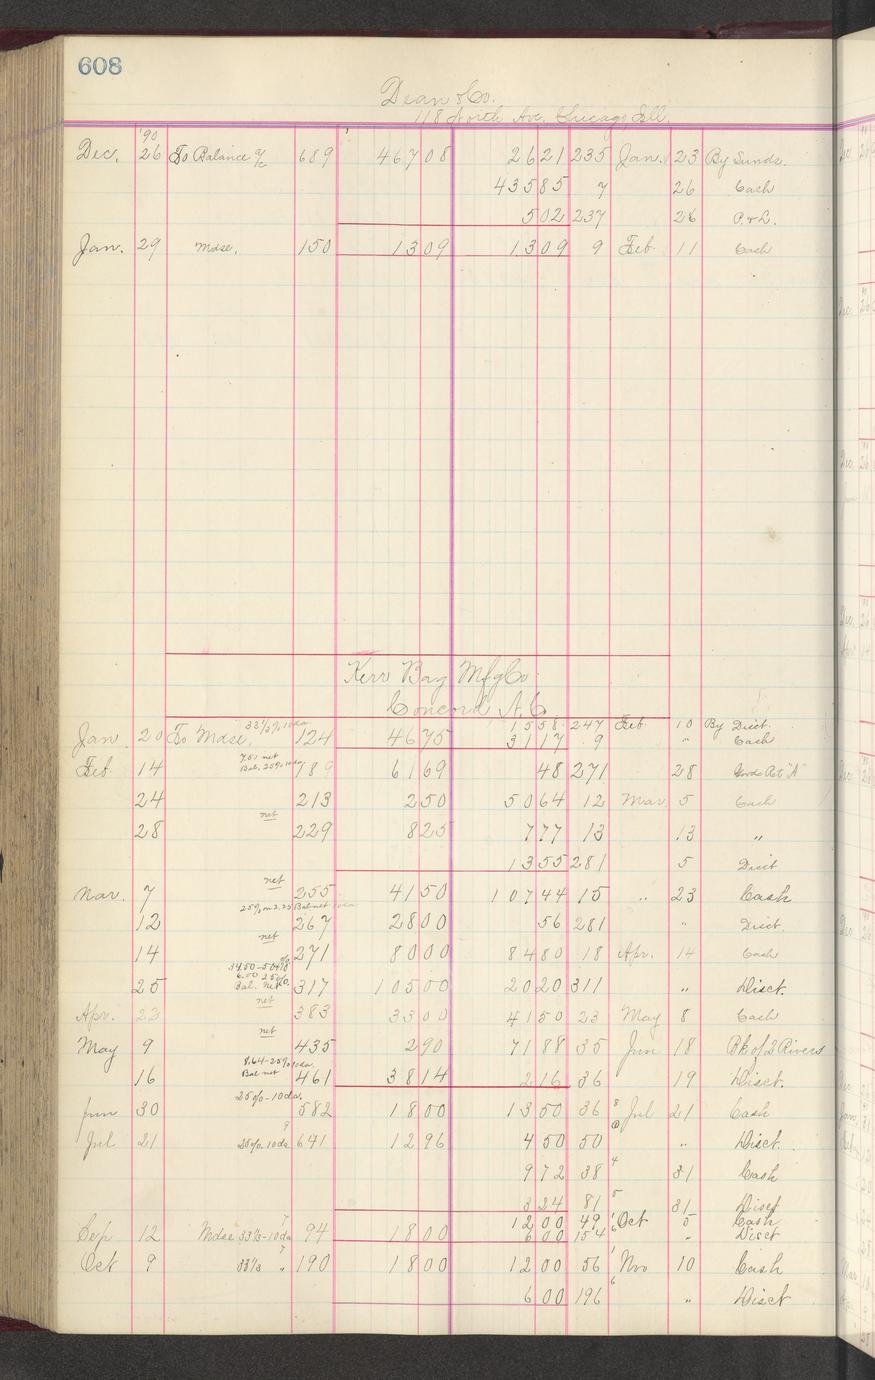 608
Dean & Co.
118 North Ave. Chicago Ill.
'90
Dec. 26 To Balance a/c 689 467 08 26 21 235 Jan. 23 By Sunds.
435 85 7 26 Cash
5 02 237 26 P. & L.
Jan. 29 Mdse. 150 13 09 13 09 9 Feb. 11 Cash
Kerr Bag Mfg Co
Concord N.C.
33 1/3% 10 da 15 58 247 Feb 10 By Disct.
Jan. 20 To Mdse. 124 46 75 31 17 9 " Cash
7.50 net
Bal. 25% 10 da
Feb. 14 189 61 69 48 271 28 Goods Ret "A"
24 213 2 50 50 64 12 Mar. 5 Cash
net
28 229 8 25 7 77 13 13 "
13 55 281 5 Disct
net
Mar. 7 255 41 50 107 44 15 " 23 Cash
25% on 2.25 Bal net 10 da
12 267 28 00 56 281 " Disct.
net
14 271 80 00 84 80 18 Apr. 14 Cash
34.50-50+10%
6.00 25%
Bal. Net
25 317 105 00 20 20 311 " Disct.
net
Apr. 22 383 33 00 41 50 23 May 8 Cash
net
May 9 435 2 90 71 88 35 Jun 18 Bk of 2 Rivers
8.64-25% 10 da
Bal net
16 461 38 14 2 16 36 19 Disct.
25%-10 da.
Jun 30 582 18 00 13 50 36 8 Jul 21 Cash
Jul 21 25%-10 da 9 641 12 96 4 50 50 " Disct
9 72 38 4 31 Cash
3 24 81 5 31 Disct
12 00 49 1 Oct 5 Cash
Sep 12 Mdse 33 1/3-10 da 7 94 18 00 6 00 154 6 " Disct
Oct 9 33 1/3 " 7 190 18 00 12 00 56 1 Nov 10 Cash
6 00 196 6 " Disct